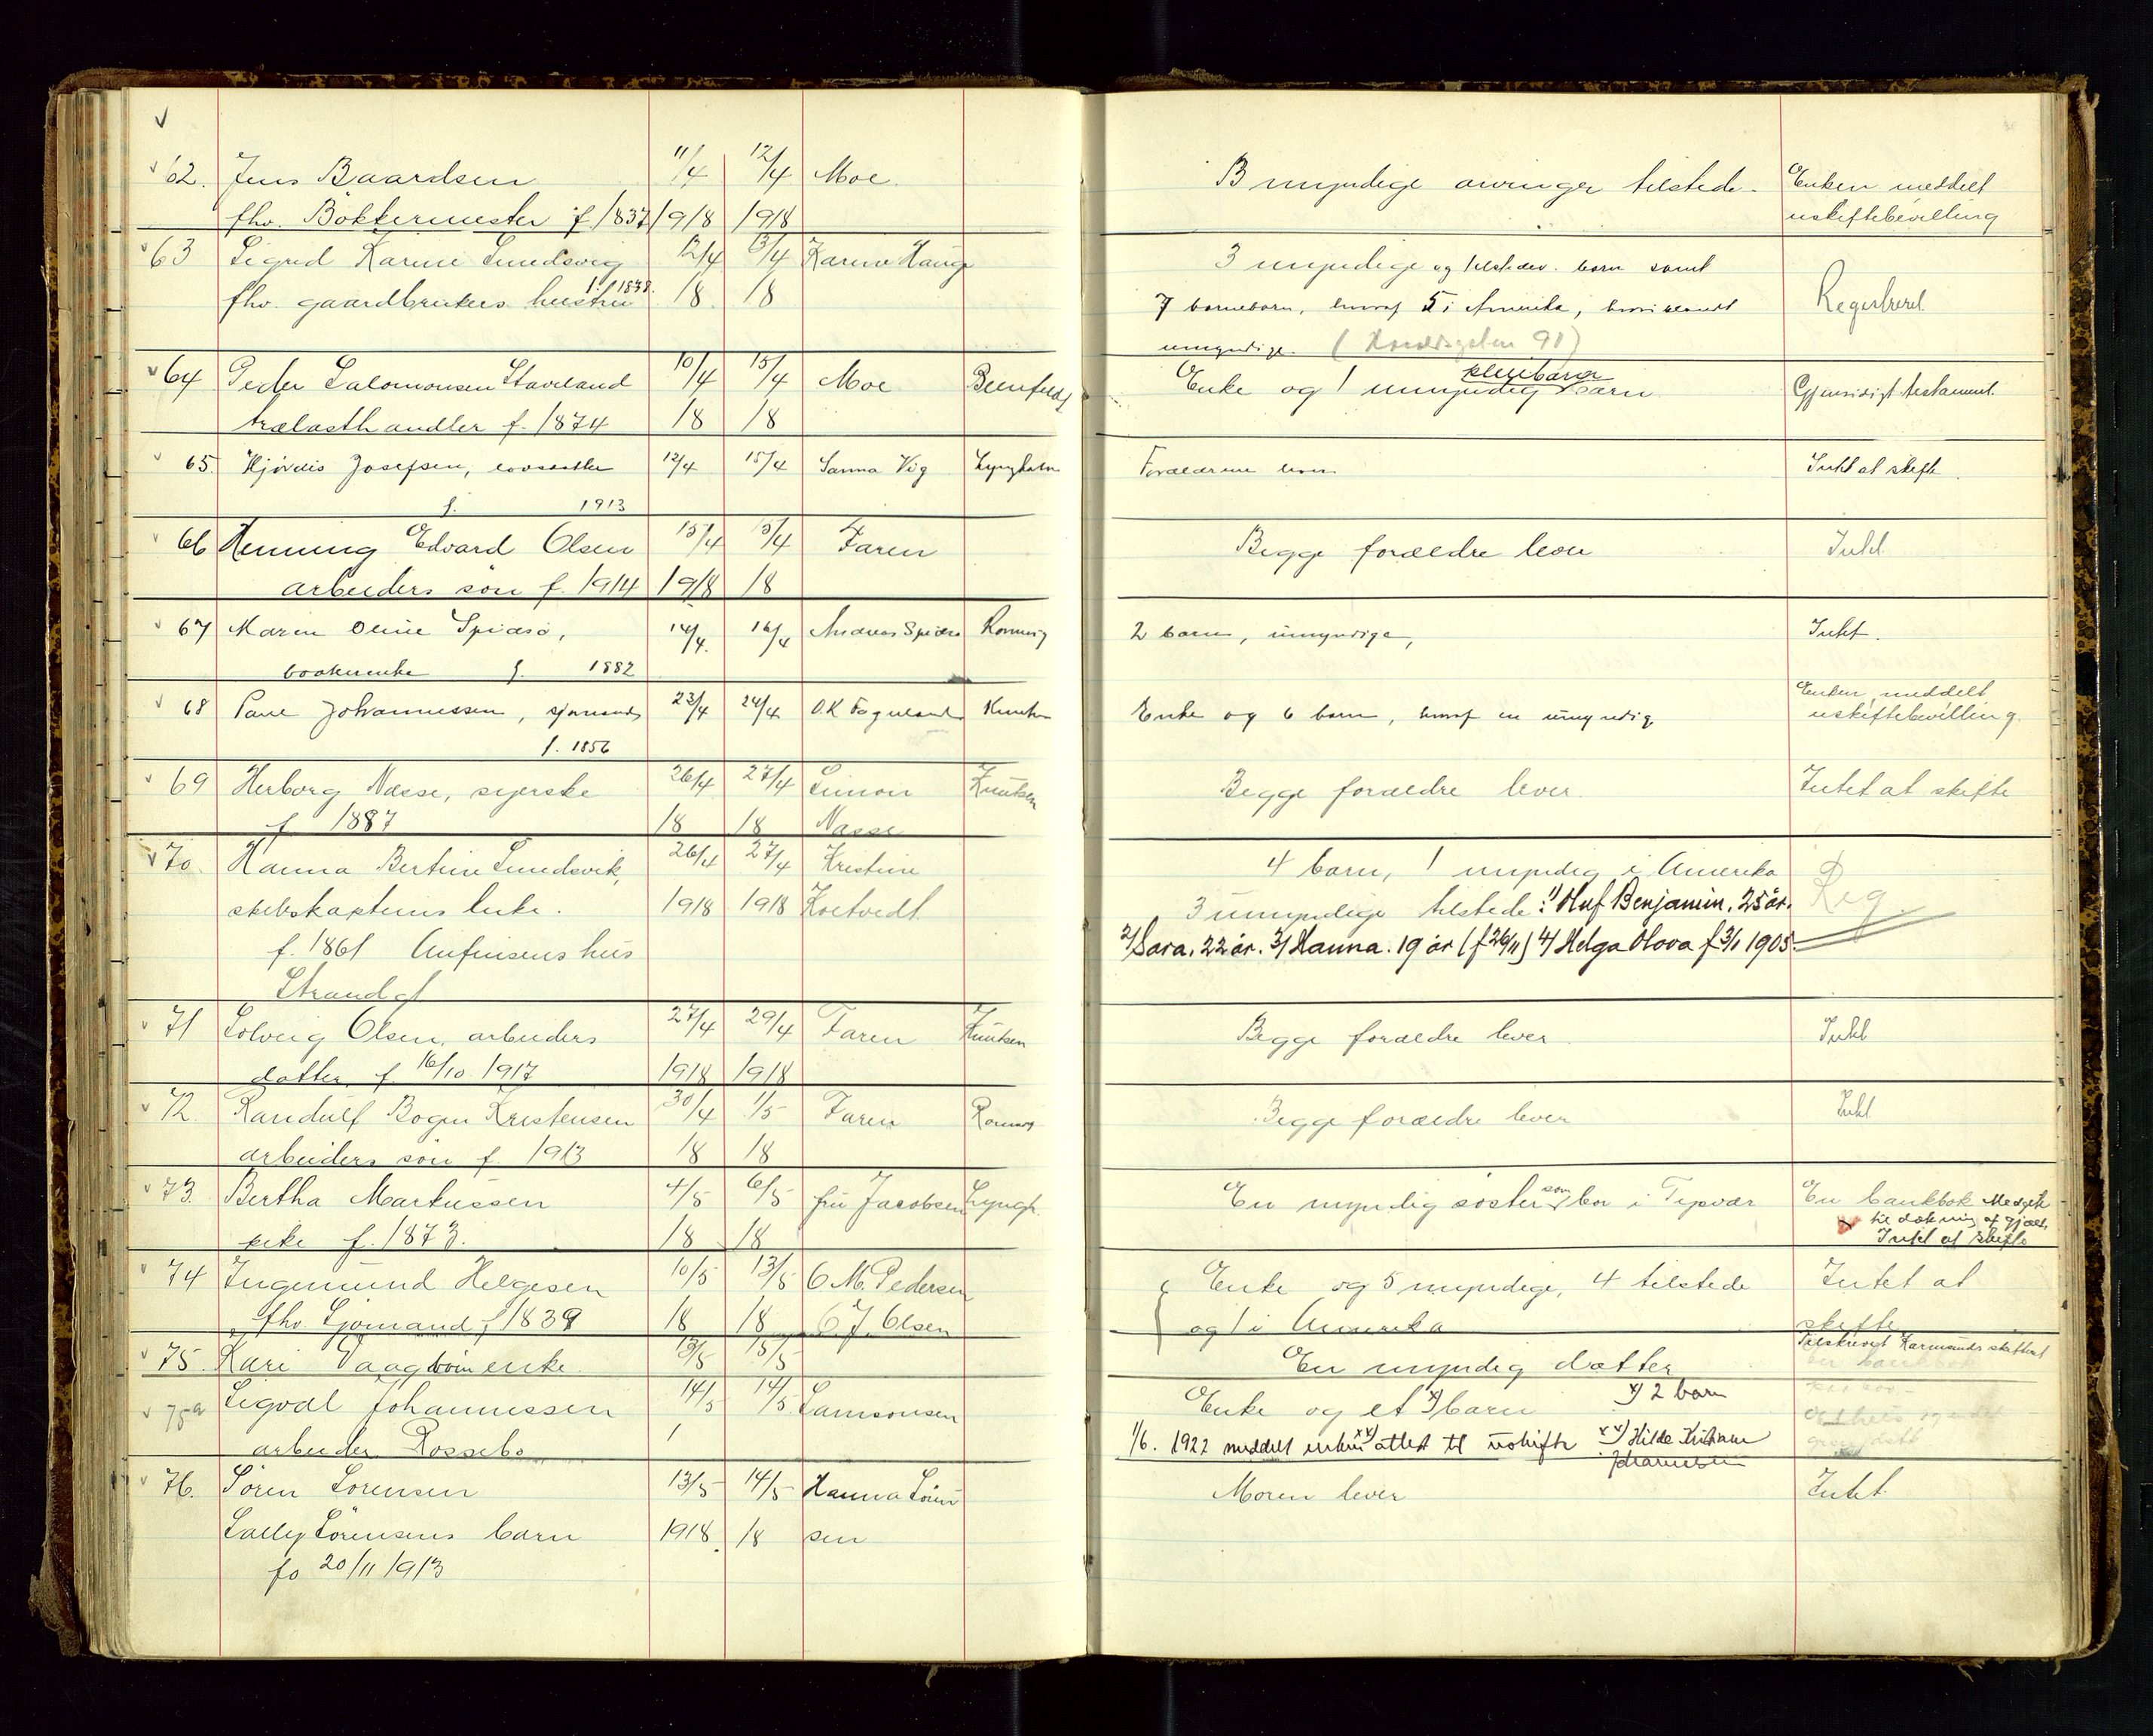 62. Jens Baardsen 11/4 12/4 Moe. B myndige arvinger tilstede. Enken meddelt
fhv. Bøkkermester f. 1837 1918 1918 uskiftebevilling
63 Sigrid Karine Smedsvig 12/4 13/4 Karine Hauge 3 myndige og tilstedev. barn samt
fhv. gaardbrukers hustru f. 1838. 18 18 7 barnebarn, hvoraf 5 i Amerika, hvoriblandt Registreret
umyndige.
64 Peder Salomonsen Stavland 10/4 15/4 Moe Enke og 1 umyndig pleiebarn barn Gjensidigt testament.
trælasthandler f. 1874 18 18
65. Hjørdis Josefsen, 12/4 15/4 Sanna Vig Lyngholm Forældrene lever Intet at skifte.
f. 1913
66 Henning Edvard Olsen 15/4 15/4 Faren Begge forældre lever Intet
arbeiders søn f. 1914 1918 18
67 Maren Oline Spidsø, 14/4. 16/4 Andreas Spidsø 2 barn, umyndige, Intet.
f. 1882
68 Paul Johannessen, sjømand 23/4 24/4 O.K Fagerland Knutsen Enke og 6 barn, hvoraf en umyndig Enken meddelt
f. 1856 uskiftebevilling.
69 Herborg Næsse, syerske 26/4 27/4 Simon Knutsen Begge forældre lever. Intet at skifte
f 1887 18 18 Næsse
70 Hanna Bertine Smedsvik, 26/4 27/4 Kristine 4 barn, 1 myndig i Amerika Reg.
skibskapteins enke. 1918 1918 3 umyndige tilstede: 1/ Oluf Benjamin, 25 år.
f. 1861 Anfinsens hus 2/ Sara, 22 år. 3/ Hanna. 19 år (f 26/11) 4/ Helga Olova f 3/1 1905
Strandgt
71 Solveig Olsen, arbeiders 27/4 29/4 Faren Knutsen Begge forældre lever Intet
datter f. 16/10 1917 1918 1918
72. Randulf Bogn Kristensen 30/4 1/5 Faren Begge forældre lever Intet
arbeiders søn f. 1913 18 18
73. Bertha Markussen 4/5 6/5 fru Jacobsen Lyngh. En myndig søster som bor i Tysvær En bankbok Medgik
pike f. 1873. 18 18 til dækning af gjæld,
Intet at skifte
74 Ingemund Helgesen 10/5 13/5 O M. Pedersen Enke og 5 myndige, 4 tilstede Intet at
fhv. Sjømand f 1839 18 18 O. J. Olsen og 1 i Amerika skifte
75. Kari Vaag enke. 13/5 15/5 En myndig datter Tilskrevet Karmsunds skifteret
En bankbok
75a Sigvål Johannessen 14/5 14/5 Samsonsen Enke og et x) barn x) 2 barn
arbeider Rossebø 1 1/6. 1922 meddelt enken xx) attest til uskifte xx) Hilda Kristiane
Johannessen
76. Sören Sörensen 13/5 14/5 Hanna Sören Moren lever Intet
Sally Sörensens barn 1918. 18 sen
fø 20/11 1913